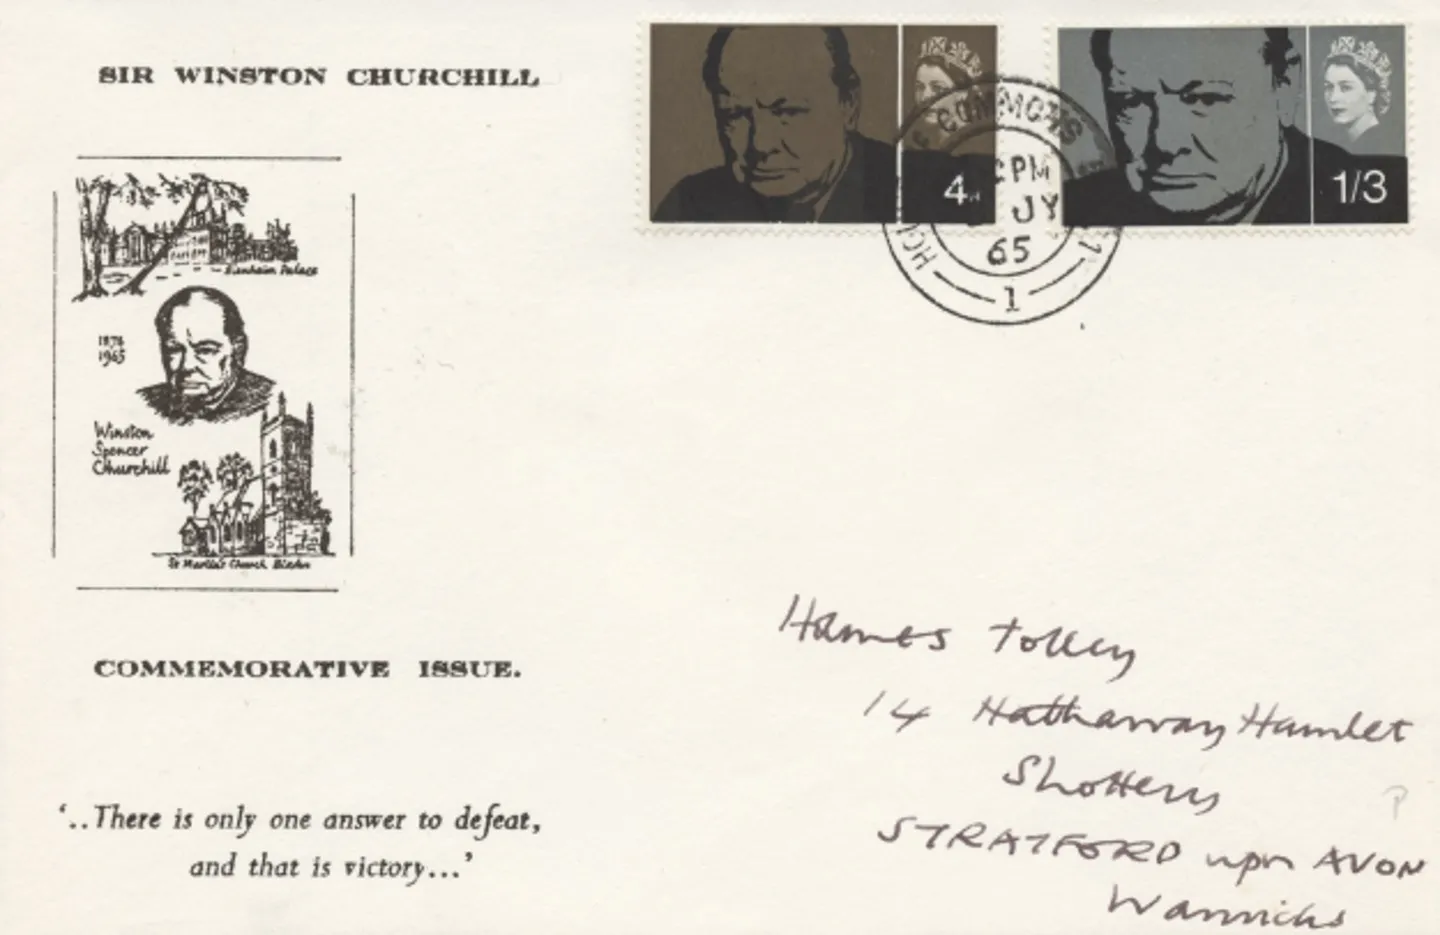 SIR WINSTON CHURCHILL
4D
1/3
COMMONS
PM
JY
65
1
Blenheim Palace
1874
1965
Winston
Spencer
Churchill
St Martin's Church Bladon
COMMEMORATIVE ISSUE.
'..There is only one answer to defeat,
and that is victory...'
Hames Tolley
14 Hathaway Hamlet
Shottery
STRATFORD upon AVON
Warwicks